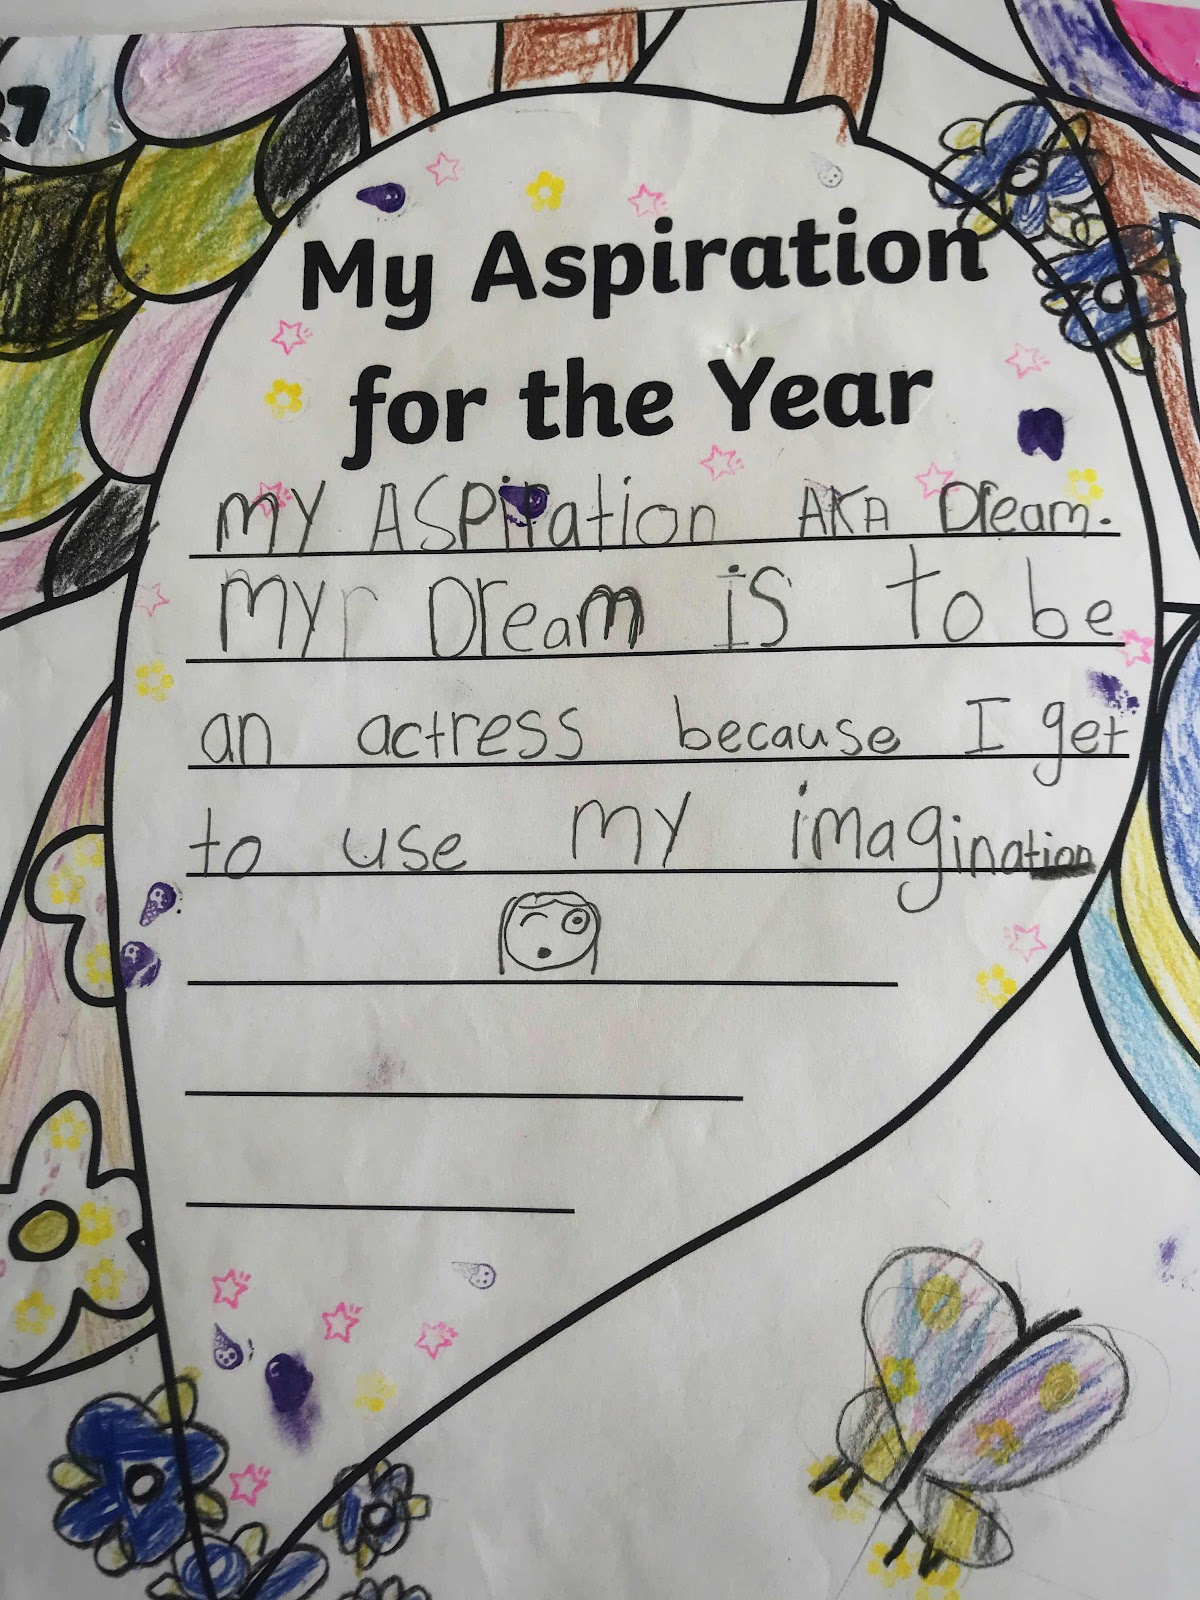 27
My Aspiration
for the Year
My ASpiration AKA Dream.
My Dream is to be
an actress because I get
to use my imagination